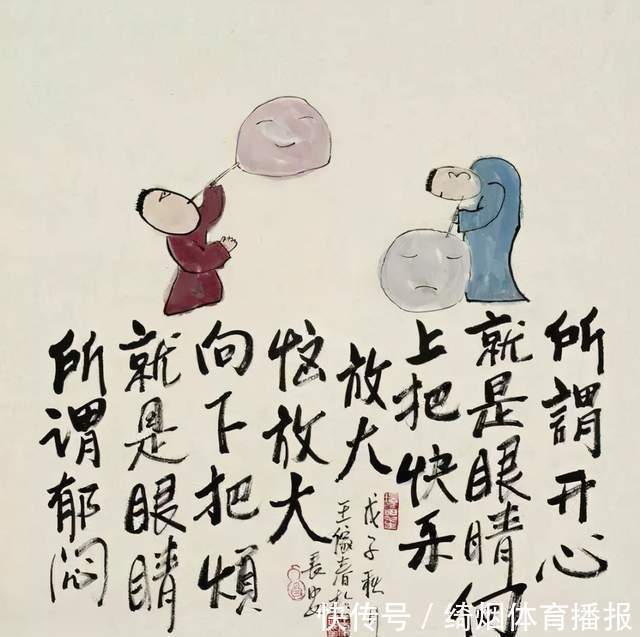 所謂开心
就是眼睛向
上把快乐
放大
所谓郁闷
就是眼睛
向下把煩
恼放大
戊子秋
王家春
快传号／绮烟体育播报